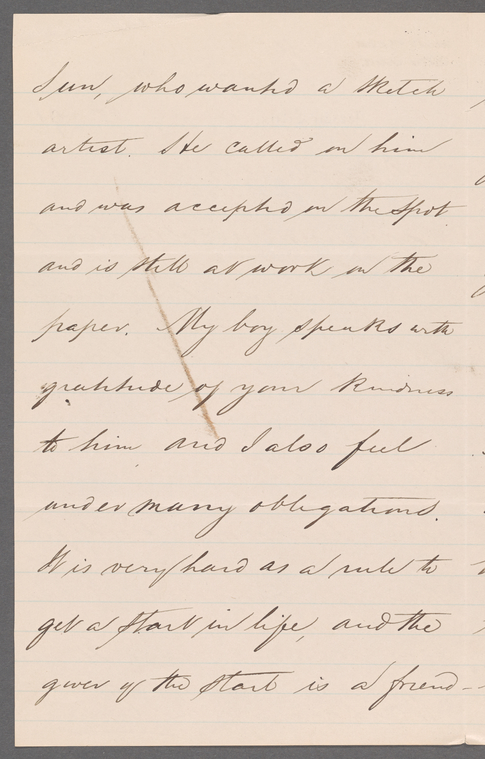 Sun, who wanted a sketch
artist. He called on him
and was accepted on the spot
and is still at work on the
paper. My boy speaks with
gratitude of your kindness
to him and I also feel
under many obligations.
It is very hard as a rule to
get a start in life, and the
giver of the start is a friend-